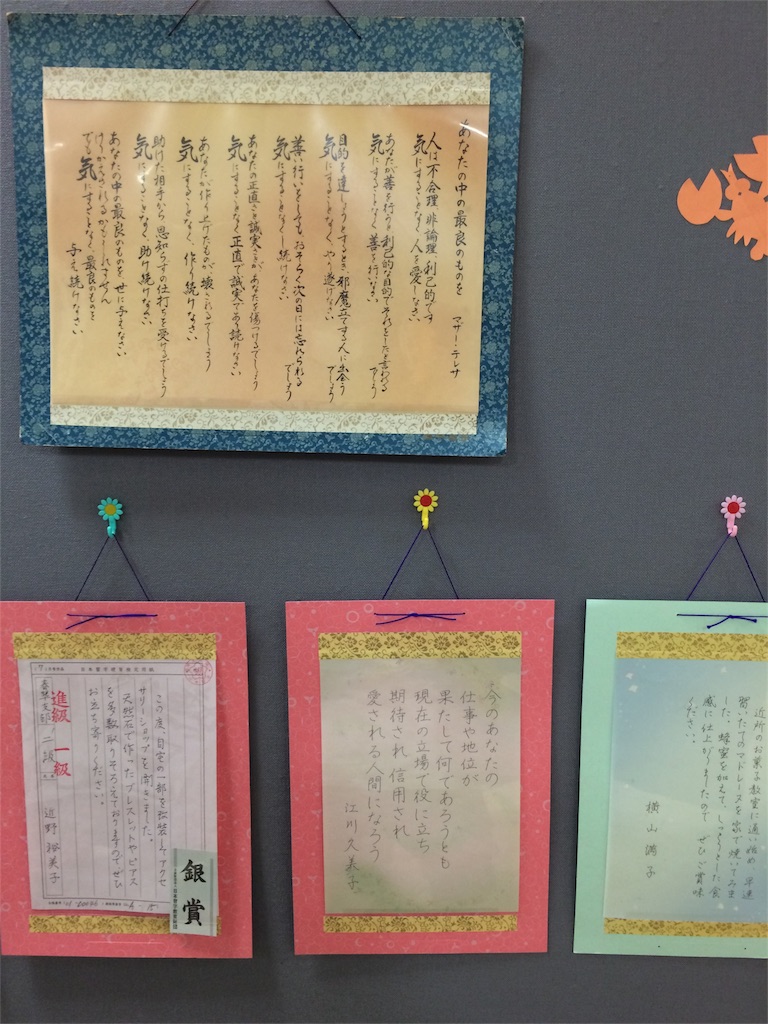 あなたの中の最良のものを
マザー・テレサ
人は不合理、非論理、利己的です
気にすることなく、人を愛しなさい
あなたが善を行うと利己的な目的でそれをしたと言われるでしょう
気にすることなく、善を行いなさい
目的を達しようとするとき、邪魔立てする人に出会うでしょう
気にすることなく、やり遂げなさい
善い行いをしても、おそらく次の日には忘れられるでしょう
気にすることなくし続けなさい
あなたの正直さと誠実さとが、あなたを傷つけるでしょう
気にすることなく正直で誠実であり続けなさい
あなたが作り上げたものが、壊されるでしょう
気にすることなく、作り続けなさい
助けた相手から恩知らずの仕打ちを受けるでしょう
気にすることなく、助け続けなさい
あなたの中の最良のものを世に与えなさい
けり返されるかもしれません
でも気にすることなく、最良のものを
与え続けなさい
この度、自宅の一部を改装しアクセ
サリーショップを開きました。
天然石で作ったブレスレットやピアス
を多数取りそろえておりますのでぜひ
お立ち寄りください。
進級 一級
二級
銀賞
今のあなたの
仕事や地位が
果たして何であろうとも
現在の立場で役に立ち
期待され信用され
愛される人間になろう
江川久美子
近所のお菓子教室に通い始め 早速
習いたてのマドレーヌを家で焼いてみま
した。蜂蜜を加えて、しっとりとした食
感に仕上がりましたので ぜひご賞味
ください。
横山満子